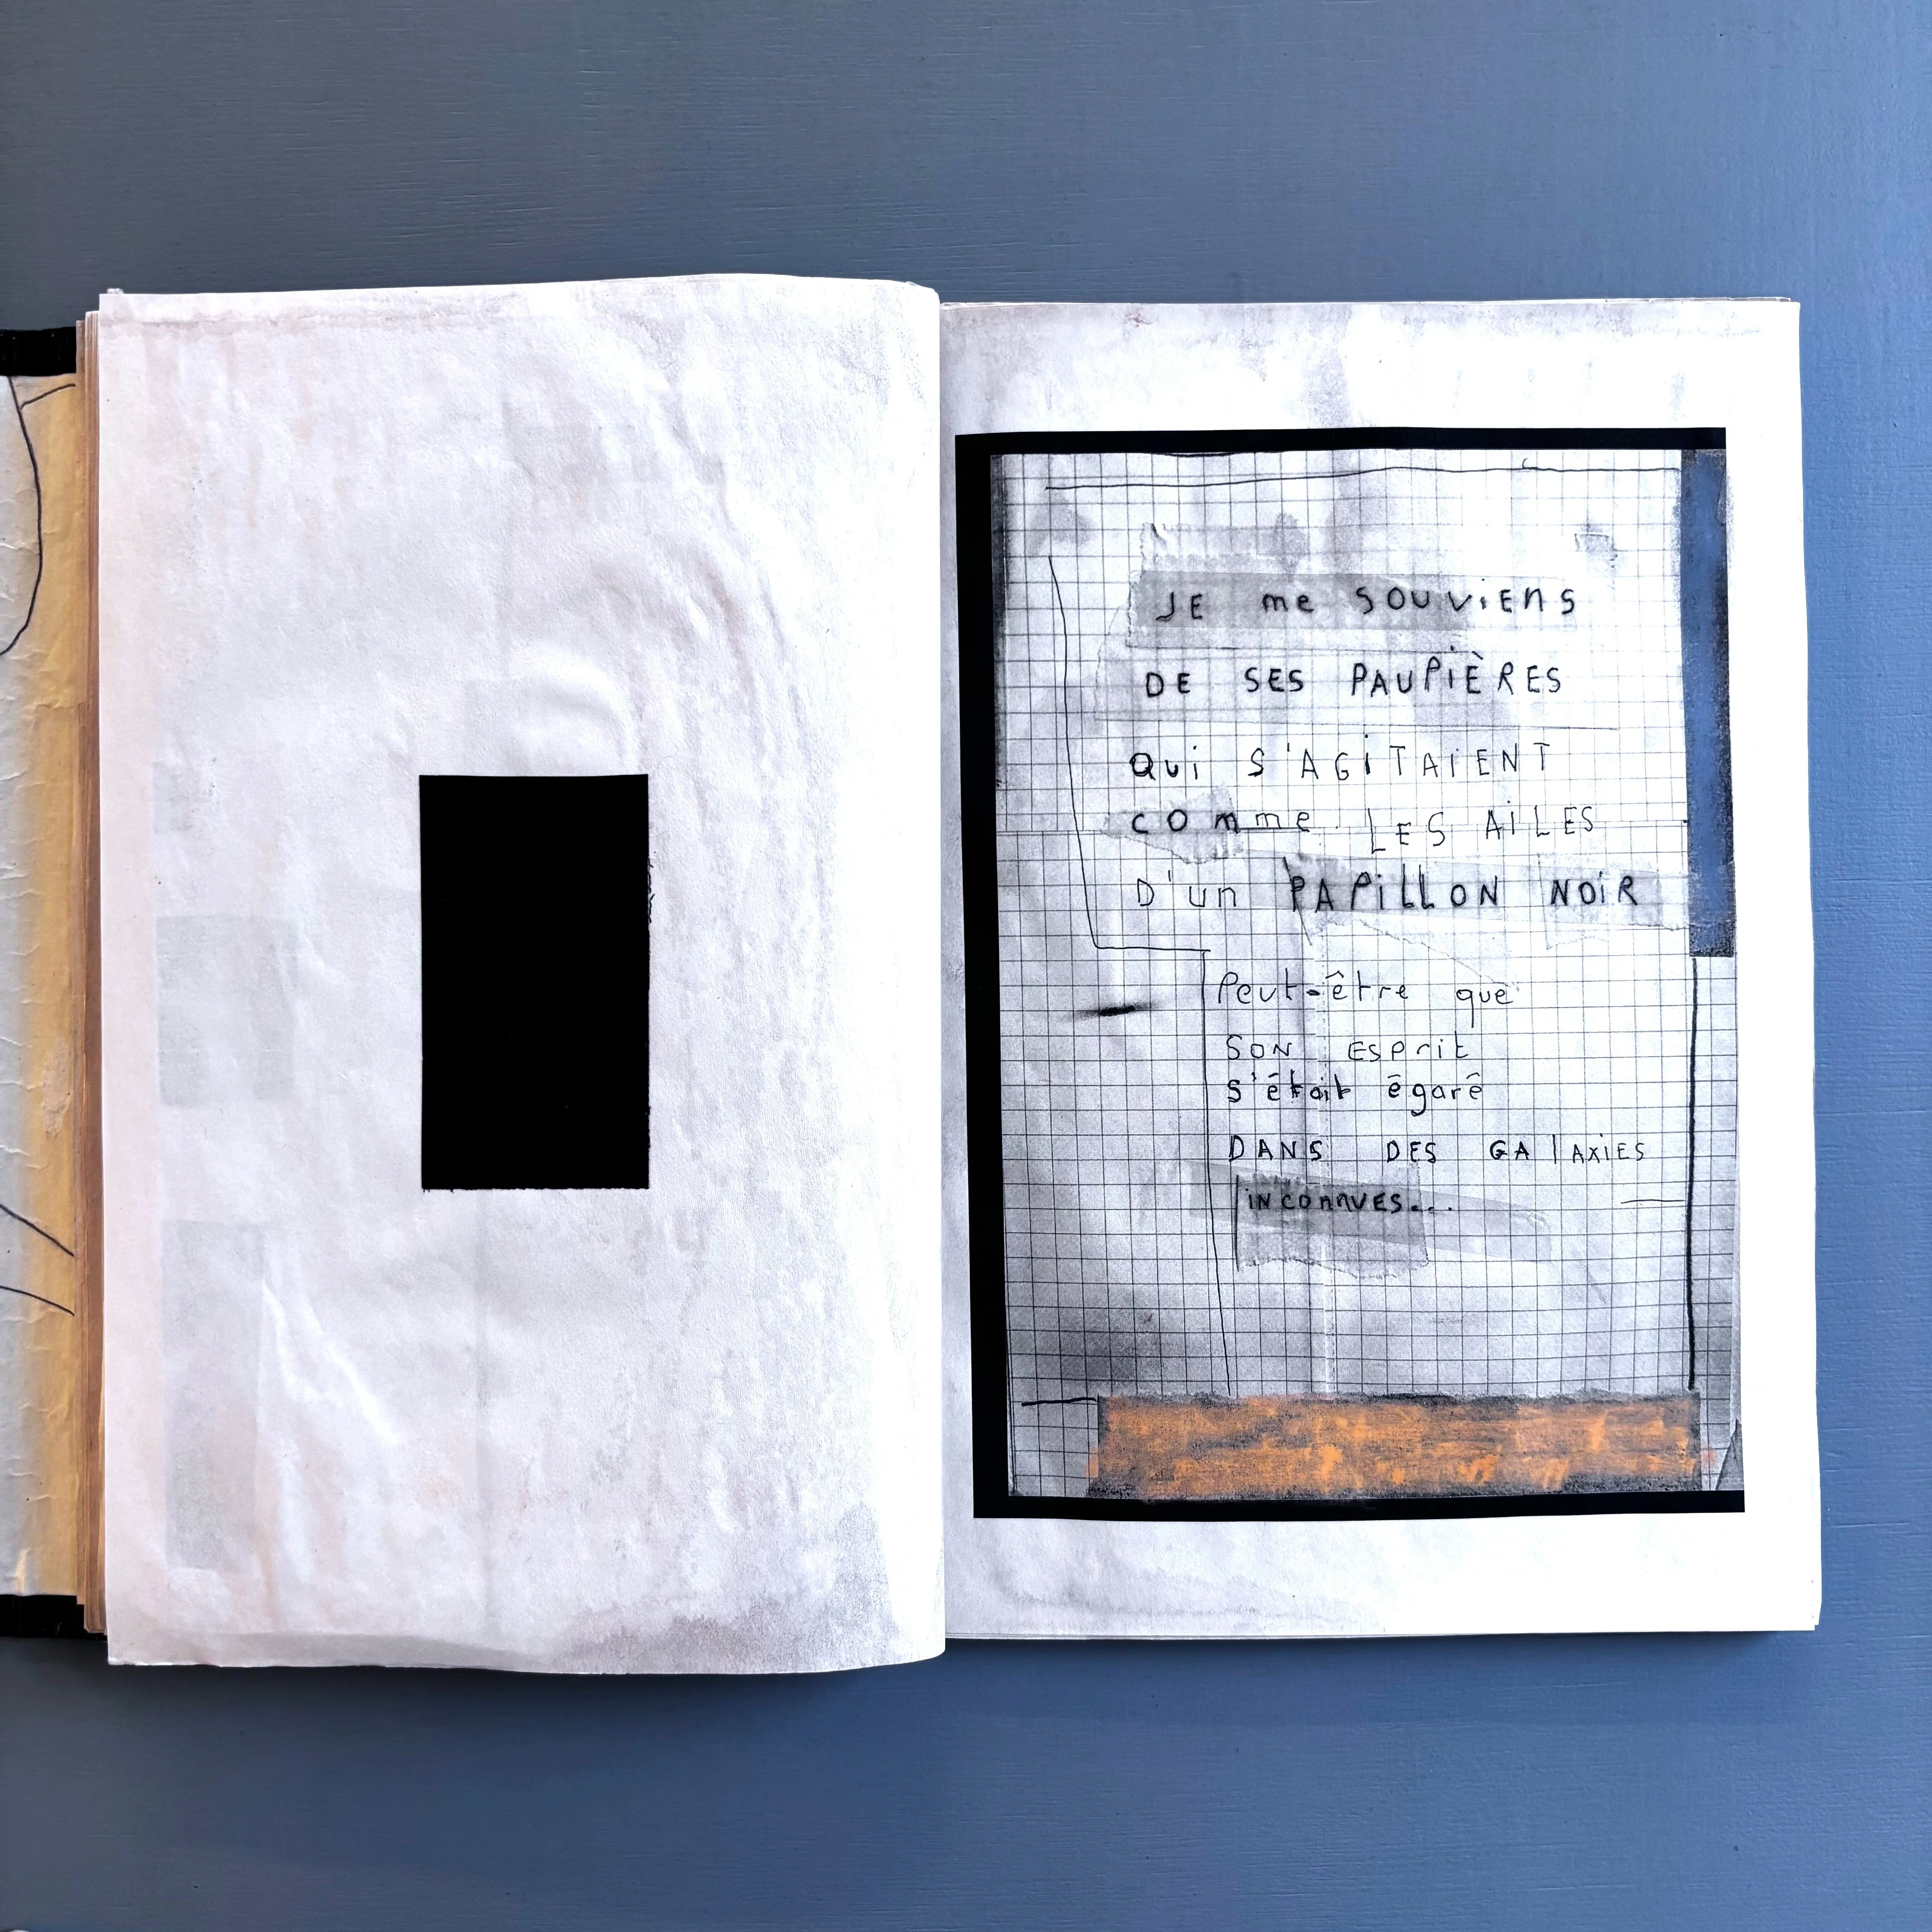 JE me SOUViENS
DE SES PAUPiÈRES
Qui S'AGiTAiENT
COmme LES AiLES
D'un PAPiLLON NOiR
Peut-être que
SON ESPrit
s'était égaré
DANS DES GAlAXiES
iNCOnnUES...